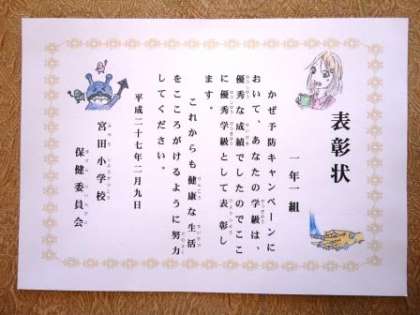 表彰状
一年一組
かぜ予防キャンペーンに
おいて、あなたの学級は、
優秀な成績でしたのでここ
に優秀学級として表彰し
ます。
これからも健康な生活
をこころがけるように努力
してください。
平成二十七年二月九日
宮田小学校
保健委員会